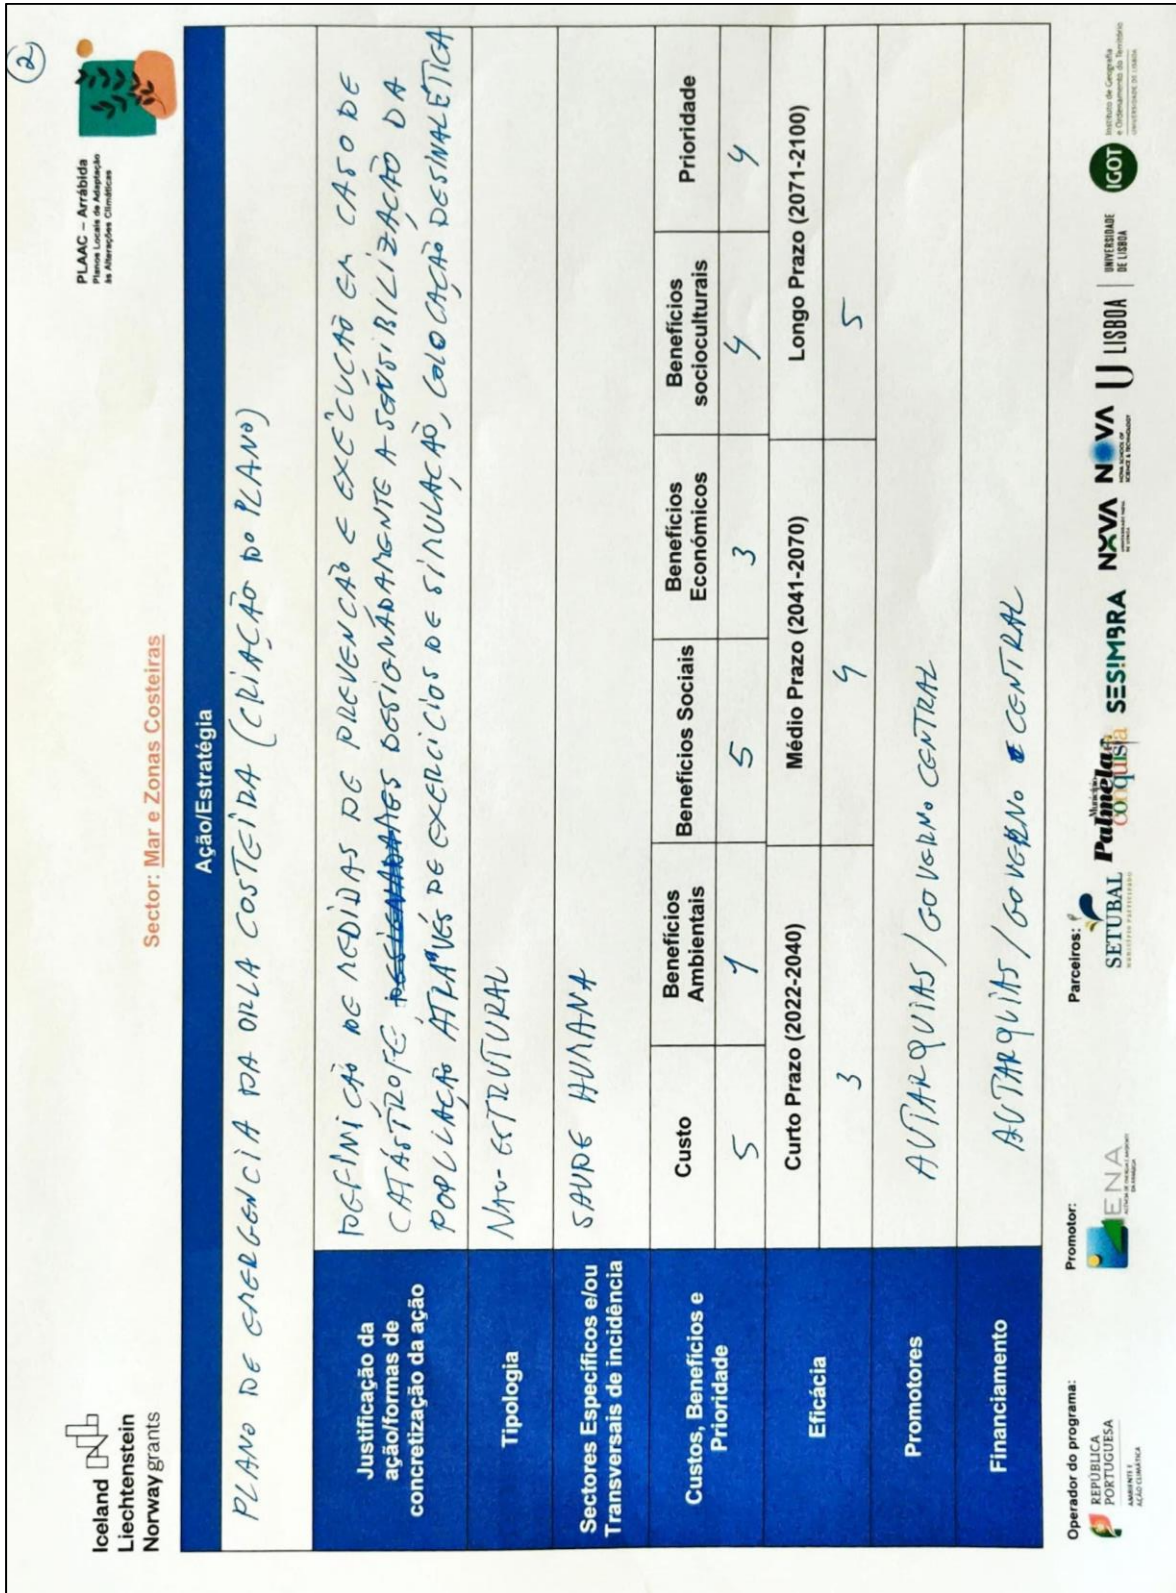 2
Iceland
Liechtenstein
Norway grants
PLAAC – Arrábida
Planos Locais de Adaptação
às Alterações Climáticas
Sector: Mar e Zonas Costeiras
Ação/Estratégia
PLANO DE EMERGENCIA DA ORLA COSTEIRA (CRIAÇÃO DO PLANO)
Justificação da
ação/formas de
concretização da ação
DEFINIÇÃO DE MEDIDAS DE PREVENÇÃO E EXECUÇÃO EM CASO DE
CATÁSTROFE DESIGNADAMENTE A SENSIBILIZAÇÃO DA
POPULAÇÃO ATRAVÉS DE EXERCICIOS DE SIMULAÇÃO, COLOCAÇÃO DE SINALÉTICA
Tipologia
NÃO-ESTRUTURAL
Sectores Específicos e/ou
Transversais de incidência
SAUDE HUMANA
Custos, Benefícios e
Prioridade
Custo
Benefícios
Ambientais
Benefícios Sociais
Benefícios
Económicos
Benefícios
socioculturais
Prioridade
5 1 5 3 4 4
Eficácia
Curto Prazo (2022-2040)
Médio Prazo (2041-2070)
Longo Prazo (2071-2100)
3 4 5
Promotores
AUTARQUIAS/GOVERNO CENTRAL
Financiamento
AUTARQUIAS/GOVERNO CENTRAL
Operador do programa:
REPÚBLICA
PORTUGUESA
AMBIENTE E
AÇÃO CLIMÁTICA
Promotor:
ENA
Parceiros:
SETÚBAL
MUNICÍPIO PARTICIPADO
Município
Palmela
conquista
SESIMBRA
NOVA
NOVA
NOVA SCHOOL OF
SCIENCE & TECHNOLOGY
U LISBOA
UNIVERSIDADE
DE LISBOA
IGOT
Instituto de Geografia
e Ordenamento do Território
UNIVERSIDADE DE LISBOA